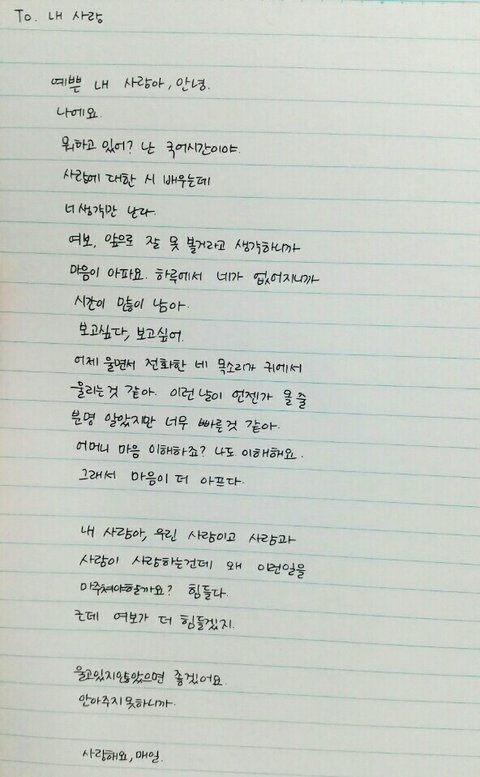 To. 내 사랑
예쁜 내 사랑아, 안녕.
나에요.
뭐하고 있어? 난 국어시간이야.
사랑에 대한 시 배우는데
너생각만 난다.
여보, 앞으로 잘 못 볼거라고 생각하니까
마음이 아파요. 하루에서 네가 없어지니까
시간이 많이 남아.
보고싶다, 보고싶어.
어제 울면서 전화한 네 목소리가 귀에서
울리는것 같아. 이런 날이 언젠가 올 줄
분명 알았지만 너무 빠른것 같아.
어머니 마음 이해하죠? 나도 이해해요.
그래서 마음이 더 아프다.
내 사랑아, 우린 사람이고 사람과
사람이 사랑하는건데 왜 이런일을
마주쳐야할까요? 힘들다.
근데 여보가 더 힘들겠지.
울고있지않았으면 좋겠어요.
안아주지못하니까.
사랑해요, 매일.